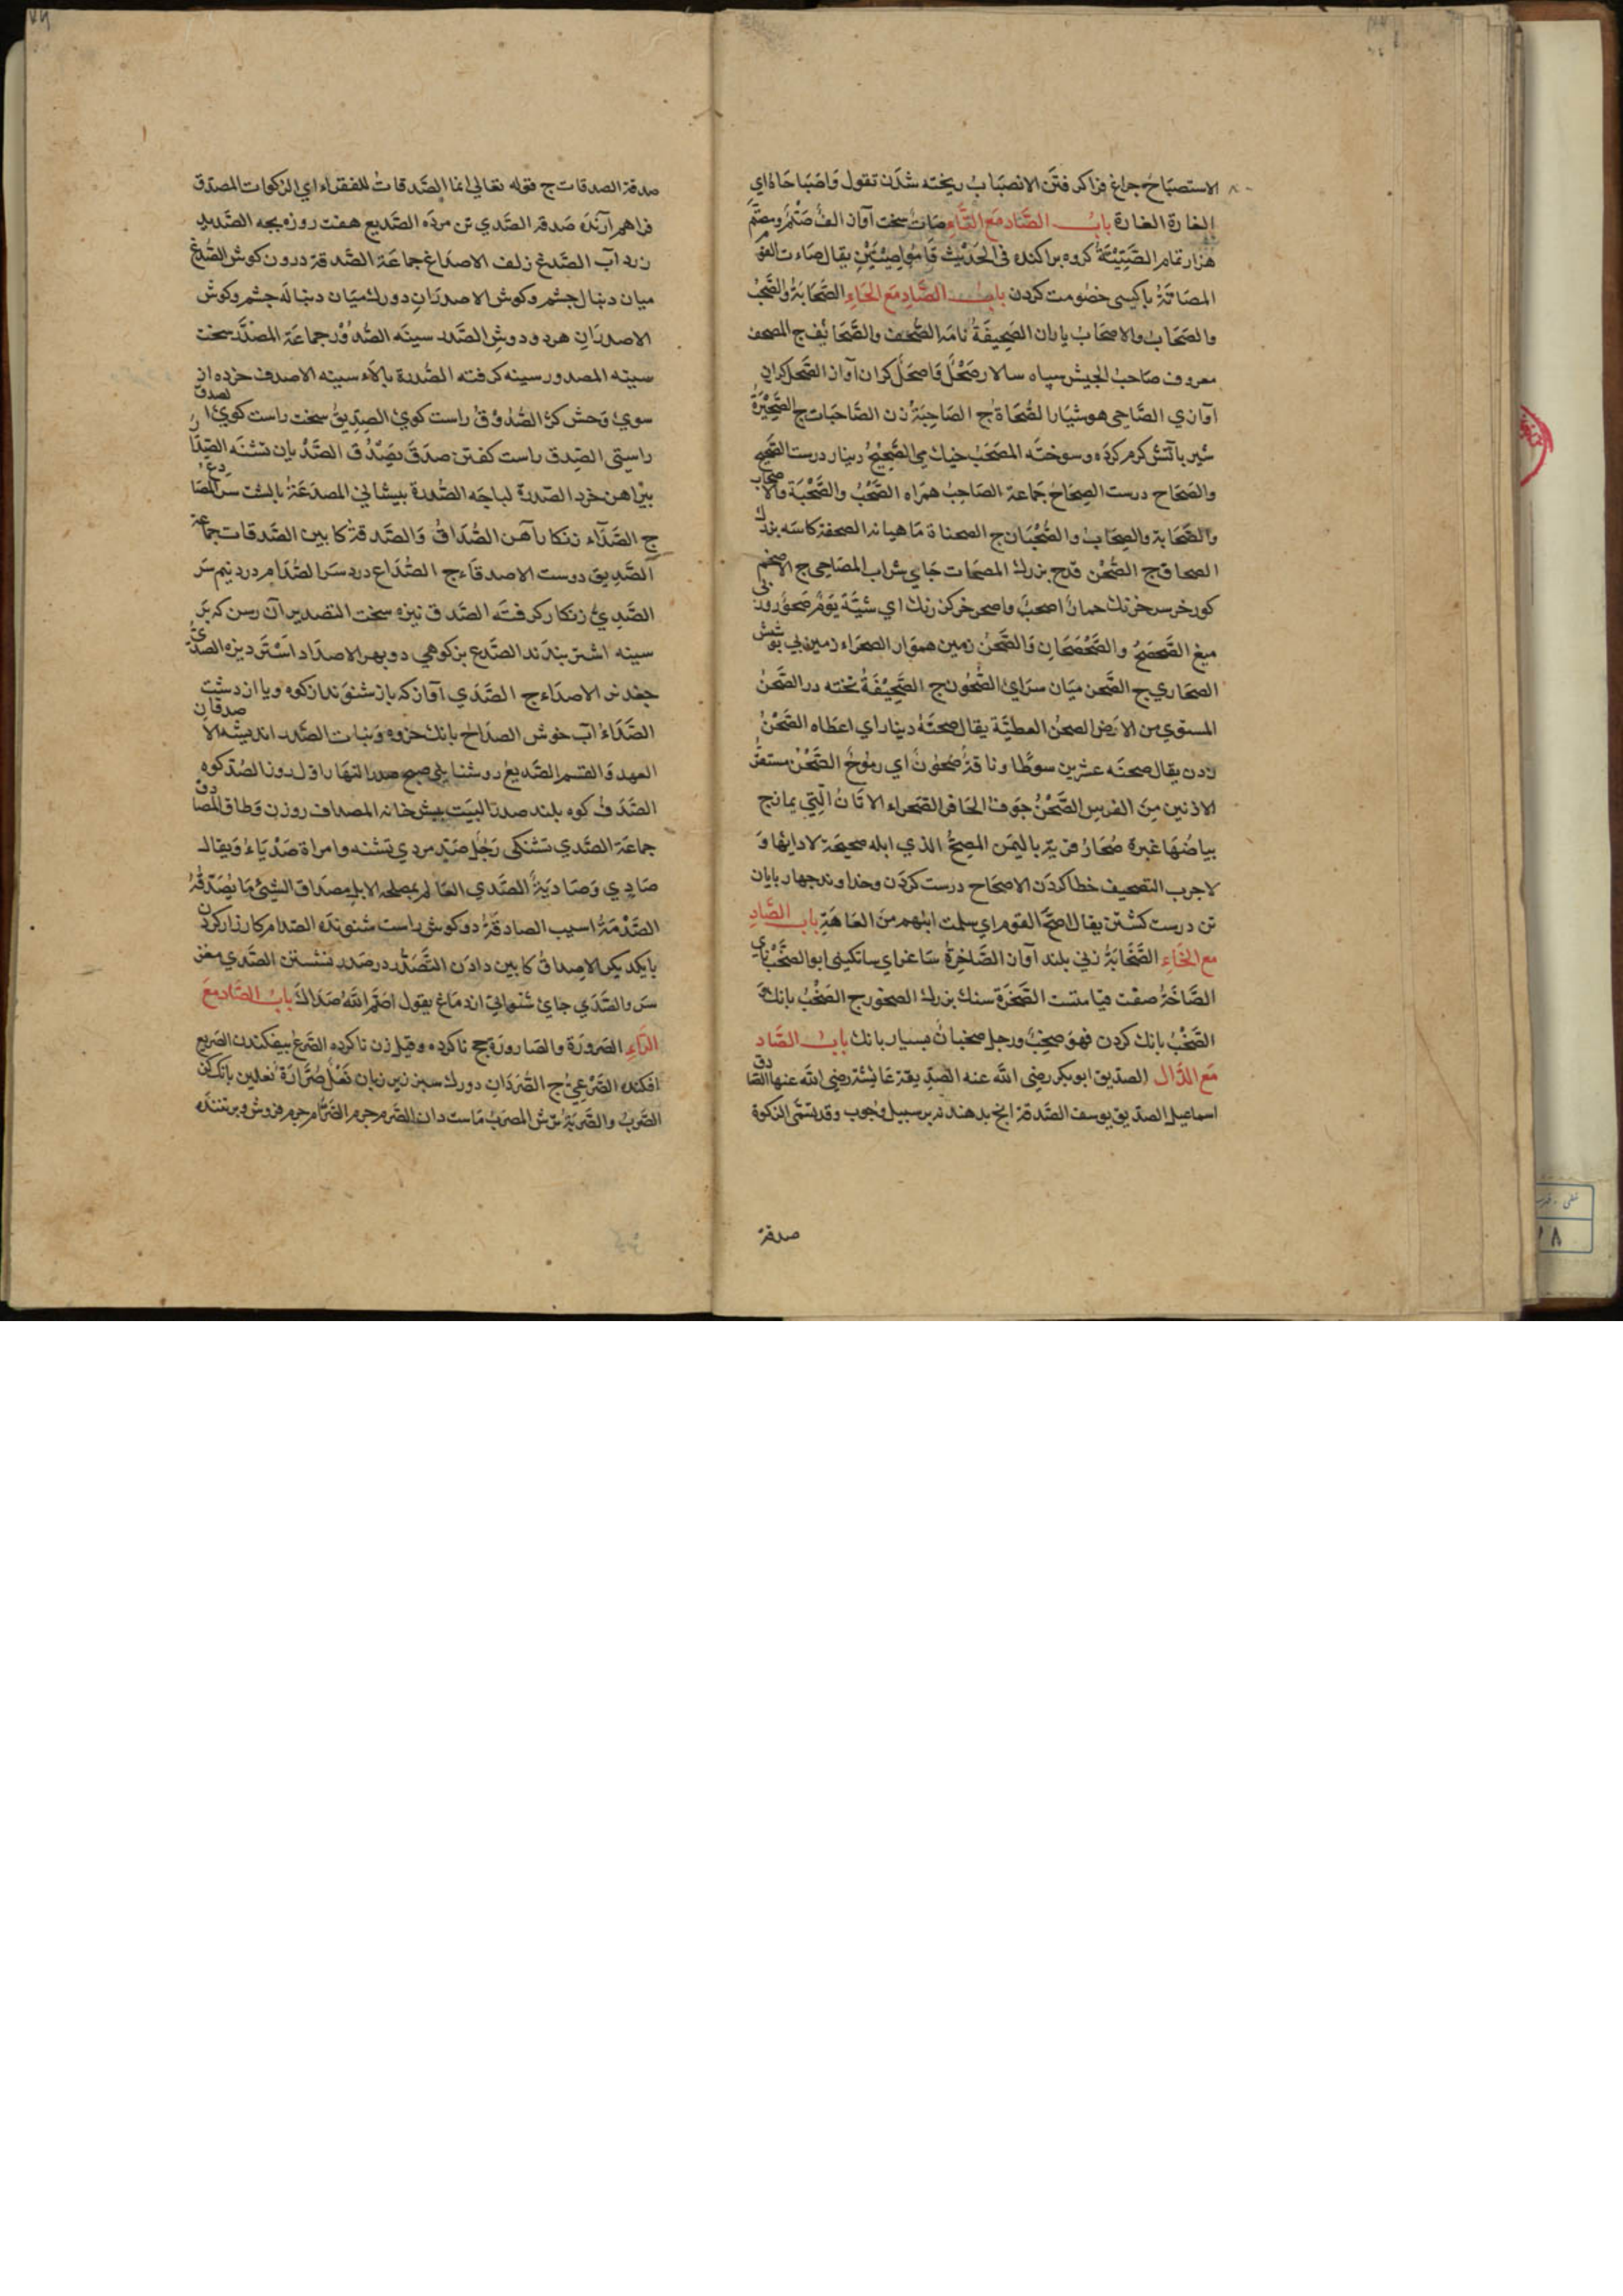 الاستصباح چراغ فرا کرفتن الانصباب ریخته شدن تقول واصباحاه ای
الغارة الغارة باب الصاد مع التاء صات سخت آواز الف صتم ومصتم
هزار تمام الصتیتة کروه پراکنده فی الحدیث قاموا صتیتین یقال صاءت القو
المصاتة باکسی خصومت کردن باب الصاد مع الحاء الصحابة والصحب
والصحاب والاصحاب یاران الصحیفة نامه الصحف والصحائف ج المصحف
معروف صاحب الجیش سپاه سالار صحل واصحل کران آواز الصحل کران
آوازی الصاحی هوشیار الصحاة ج الصاحبة زن الصاحبات ج الصحیرة
شیر باتش کرم کرده وسوخته المصحب خیك می الصحیح دینار درست الصحیح
والصحاح درست الصحاح جماعة الصاحب همراه الصحب والصحبة والاصحاب
والصحابة والصحاب والصحبان ج الصحناة ماهیانه الصحفة کاسه بزرك
الصحاف ج الصحن قدح بزرك المصحات جای شراب المصاحی ج الاصخم
کورخر سرخ رنك حمار اصحر واصحر خرکن رنك ای شیة یوم صحو روز بی
میغ الصحصح والصحصحان والصحن زمین هموار الصحراء زمین بی پوشش
الصحاری ج الصحن میان سرای الصحون ج الصحیفة تخته در الصحن
المستوی من الارض الصحن العطیة یقال صحنه دینارا ای اعطاه الصحن
زدن یقال صحنه عشرین سوطا وناقة صحون ای رموح الصحن مستقر
الاذنین من الفرس الصحن جوف الحافر الصحراء الاتان التی یمازج
بیاضها غبرة صحار قریة بالیمن المصح الذی ابله صحیحة لا داء بها و
لا جرب التصحیف خطا کردن الاصحاح درست کردن وخداوند چهارپایان
تن درست کشتن یقال اصح القوم ای سلمت ابلهم من العاهة باب الصاد
مع الخاء الصخابة زنی بلند آواز الصاخرة ساغر ای ساتکینی ابو الصخب نای
الصاخة صفت قیامتست الصخرة سنك بزرك الصخور ج الصخب بانك
الصخب بانك کردن فهو صخب ورجل صخبان بسیار بانك باب الصاد
مع الدال الصدیق ابوبکر رضی الله عنه الصدیقة عایشة رضی الله عنها الصادق
اسماعیل الصدیق یوسف الصدقة انچ بدهند نه بر سبیل وجوب وقد یسمی الزکوة
صدقة
صدقة الصدقات ج قوله تعالی انما الصدقات للفقراء ای الزکوات المصدق
فراهم آرنده صدقه الصدی تن مرده الصدیع هفت روزه بچه الصدید
زرد آب الصدغ زلف الاصداغ جماعة الصدقة درون کوش الصدغ
میان دنبال چشم وکوش الاصدران دو رك میان دنباله چشم وکوش
الاصدران هر دو دوش الصدر سینه الصدور جماعة المصدر سخت
سینه المصدور سینه کرفته الصدرة بالاء سینه الاصدف خرده از
سوی وحش کژ الصدوق راست کوی الصدیق سخت راست کوی الصدق
راستی الصدق راست کفتن صدق یصدق الصدیان تشنه الصدار
پیراهن خرد الصدرة لباچه الصدرة پیشانی المصدغة بالشت سر المصادغ
ج الصداء زنکار آهن الصداق والصدقة کابین الصدقات جماعة
الصدیق دوست الاصدقاء ج الصداع درد سر الصدام درد نیم سر
الصدئ زنکار کرفته الصدق نیزه سخت التصدیر آن رسن که بر
سینه اشتر بندند الصدع بز کوهی دوبهر الاصداد استر دیزه الصدی
جغد نر الاصداء ج الصدی آواز که باز شنوند از کوه ویا از دشت
الصداء آب خوش الصداح بانك خروه وبنات الصدر اندیشه الاصدقان
العهد والقسم الصدیع روشنایی صبح صدر النهار اول روز الصد کوه
الصدف کوه بلند صدر البیت پیش خانه المصداف روزن وطاق المصادف
جماعة الصدی تشنکی رجل صد مردی تشنه وامراة صدیاء ویقال
صادی وصادیة الصدی العالم بمصلحة الابل مصداق الشیئ ما یصدقه
الصدمة اسیب الصادقة دو کوش راست شنونده الصدام کارزار کردن
با یکدیکر الاصداق کابین دادن التصدر در صدر نشستن الصدی مغز
سر والصدی جای شنوائی از دماغ یقول اصم الله صداك باب الصاد مع
الراء الصرورة والصارورة حج ناکرده وقیل زن ناکرده الصرع بیفکندن الصریع
افکنده الصرعی ج الصردان دو رك سبز زیر زبان نعل صرارة نعلین بانك کن
الصرب والصربة ترش المصرب ماست دان الصرم چرم الصرام چرم فروش وبرننده